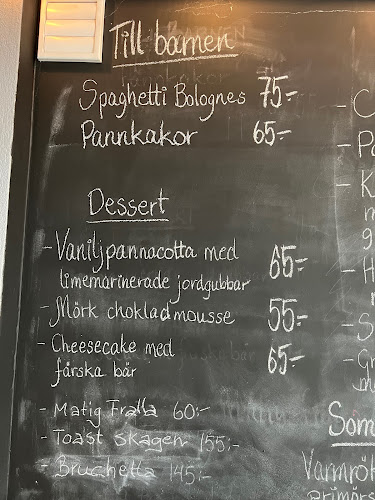 Till barnen
Spaghetti Bolognes 75:-
Pannkakor 65:-
Dessert
- Vaniljpannacotta med
limemarinerade jordgubbar 65:-
- Mörk chokladmousse 55:-
- Cheesecake med
färska bär 65:-
- Matig Fralla 60:-
- Toast Skagen 155:-
- Bruchetta 145:-
- C
- Pa
- K
- H
- S
- Gr
Som
Varmrök
primörs